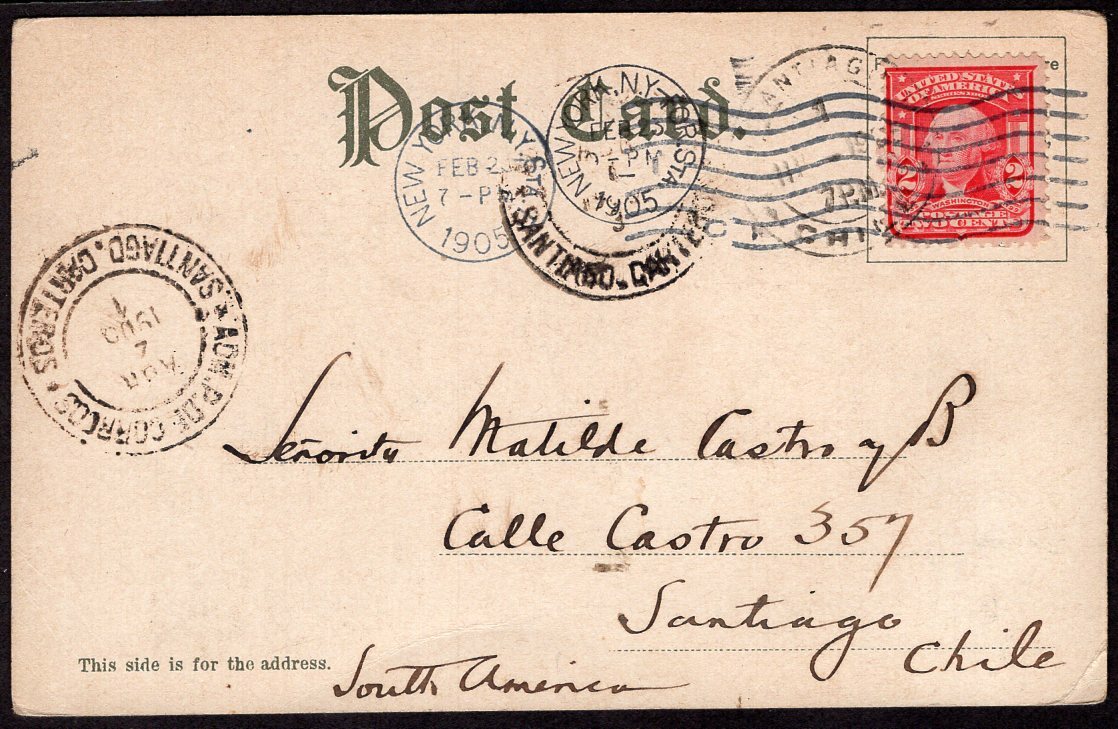 Post Card.
NEW YORK, N.Y. STA.
FEB 2
7-P
1905
NEW YORK, N.Y.-HOR. STA.
FEB 25
PM
1905
SANTIAGO
7 PM
CHILE
UNITED STATES
OF AMERICA
2 2
WASHINGTON
POSTAGE
TWO CENTS
SANTIAGO. CARTEROS
ADM. P. DE CORREOS * SANTIAGO. CARTEROS *
ABR
2
Señorita Matilde Castro y B
Calle Castro 357
Santiago
Chile
South America
This side is for the address.